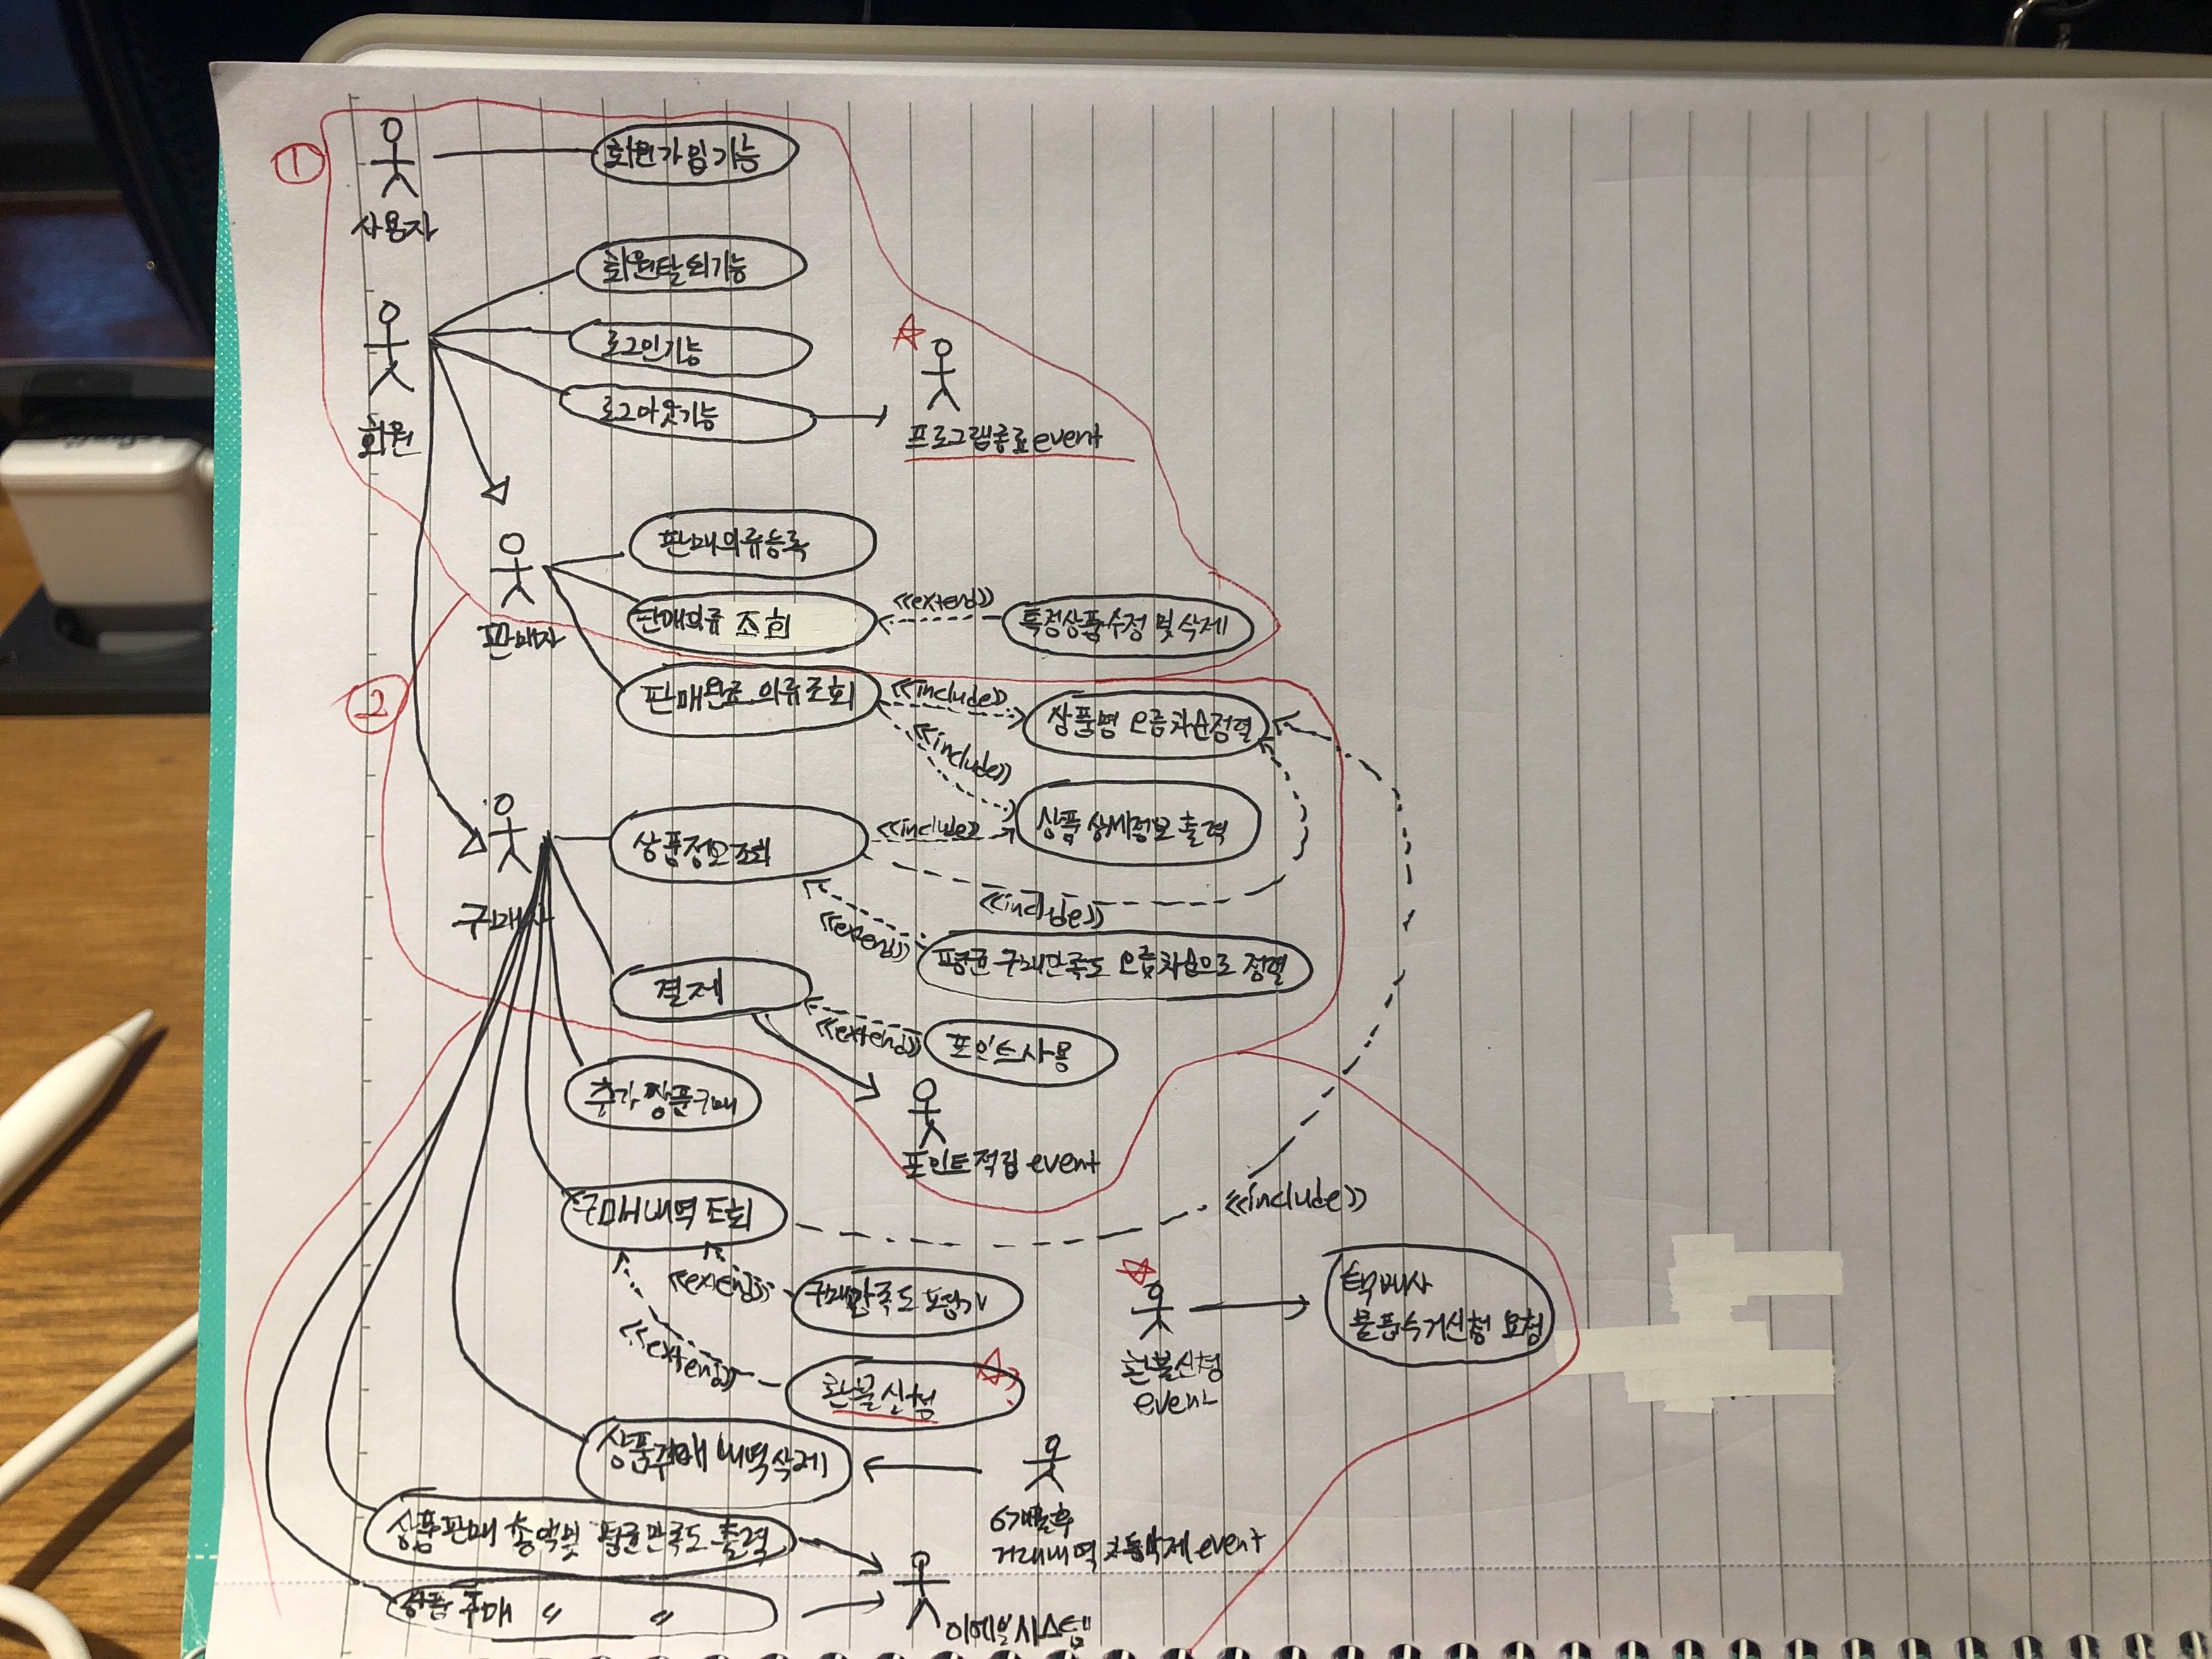 ①
회원가입기능
사용자
회원탈퇴기능
로그인기능
로그아웃기능
회원
프로그램종료 event
판매의류등록
판매의류 조회
<<extend>>
특정상품수정 및 삭제
판매자
②
판매완료 의류조회
<<include>>
상품명 오름차순정렬
<<include>>
상품정보조회
<<include>>
상품 상세정보 출력
<<include>>
구매자
<<extend>>
평균 구매만족도 오름차순으로 정렬
결제
<<extend>>
포인트사용
추가 상품구매
포인트적립 event
구매내역 조회
<<include>>
<<extend>>
구매만족도 평가
택배사
물품수거신청 요청
<<extend>>
환불신청
환불신청
event
상품구매 내역삭제
6개월후
거래내역 자동삭제 event
상품판매 총액및 평균만족도 출력
상품 구매 〃 〃
이메일시스템